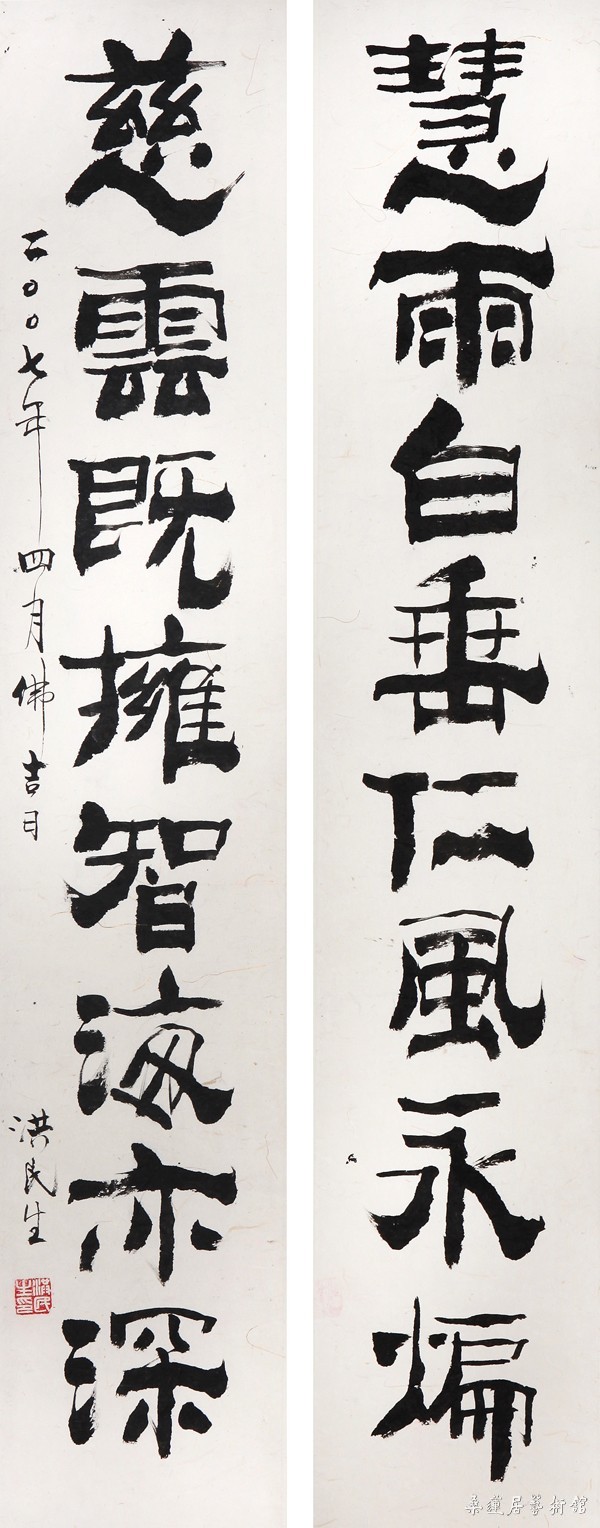 慧雨自垂仁風永煽
慈雲既擁智海亦深
二〇〇七年四月佛吉日
洪民生
洪民生印
桑蓮居藝術館